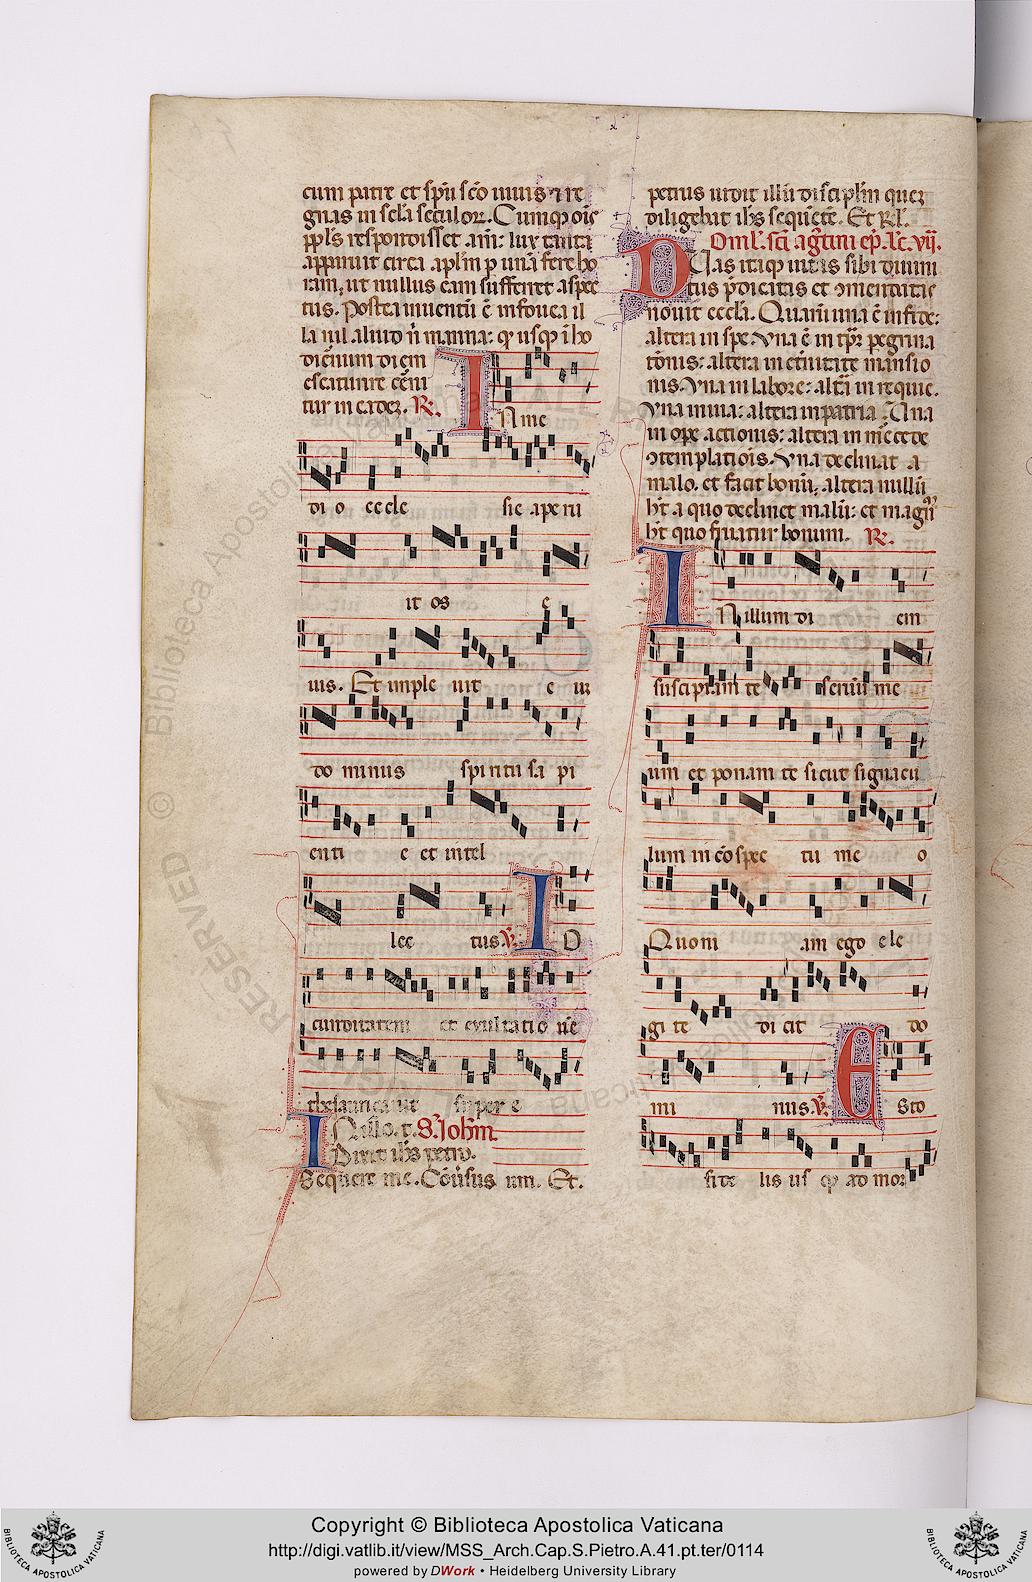 cum patre et spū sc̄o uiuis ⁊ re
gnas in scl̄a seculoꝝ. Cumqꝫ oīs
ppl̄s respondisset am̄: lux tanta
apparuit circa apl̄m ꝑ unā fere ho
ram, ut nullus eam sufferret aspec
tus. Postea inuentū ē in fouea il
la nil aliud nˡ manna: qꝫ usqꝫ ī ho
diernum diem
tur in eadeꝫ. ℟.
IN me
di o eccle sie aperu
it os e
ius. Et imple uit e uꝫ
do minus spiritu sa pi
enti e et intel
lec tus ℣. IO
cunditatem et exultatio nē
thesauricauit super e
In illo. t. S. Ioh̄m.
Dixit ih̄s petro.
Sequere me. Cōuersus um. Et.
petrus uidit illū discipl̄m queꝫ
diligebat ih̄s sequētē. Et Rl̄.
Oml̄. sc̄i agustini ep̄. lc̄. vij.
Duas itaqꝫ uitas sibi diuini
tus p̄dicatas et ↄmendatas
nouit eccl̄a. Quarū una ē in fide:
altera in spe. Vna ē in tp̄r peregrina
tōnis: altera in etn̄itate mansio
nis. Vna in labore: altā in requie.
Vna in uia: altera in patria. Una
in oꝑe actionis: altera in mercede
ↄtemplatiōis. Vna declinat a
malo. et facit bonū: altera nullū
ht̄ a quo declinet malū: et magnū
ht̄ quo fruatur bonum. ℟.
IN illum di em
suscipiam te seruū me
um et ponam te sicut signacu
lum in cōspec tu me o
Quoni am ego ele
gi te dicit do
mi nus ℣. Esto
fide lis usqꝫ ad mor
Copyright © Biblioteca Apostolica Vaticana
http://digi.vatlib.it/view/MSS_Arch.Cap.S.Pietro.A.41.pt.ter/0114
powered by DWork • Heidelberg University Library
BIBLIOTECA APOSTOLICA VATICANA
BIBLIOTECA APOSTOLICA VATICANA